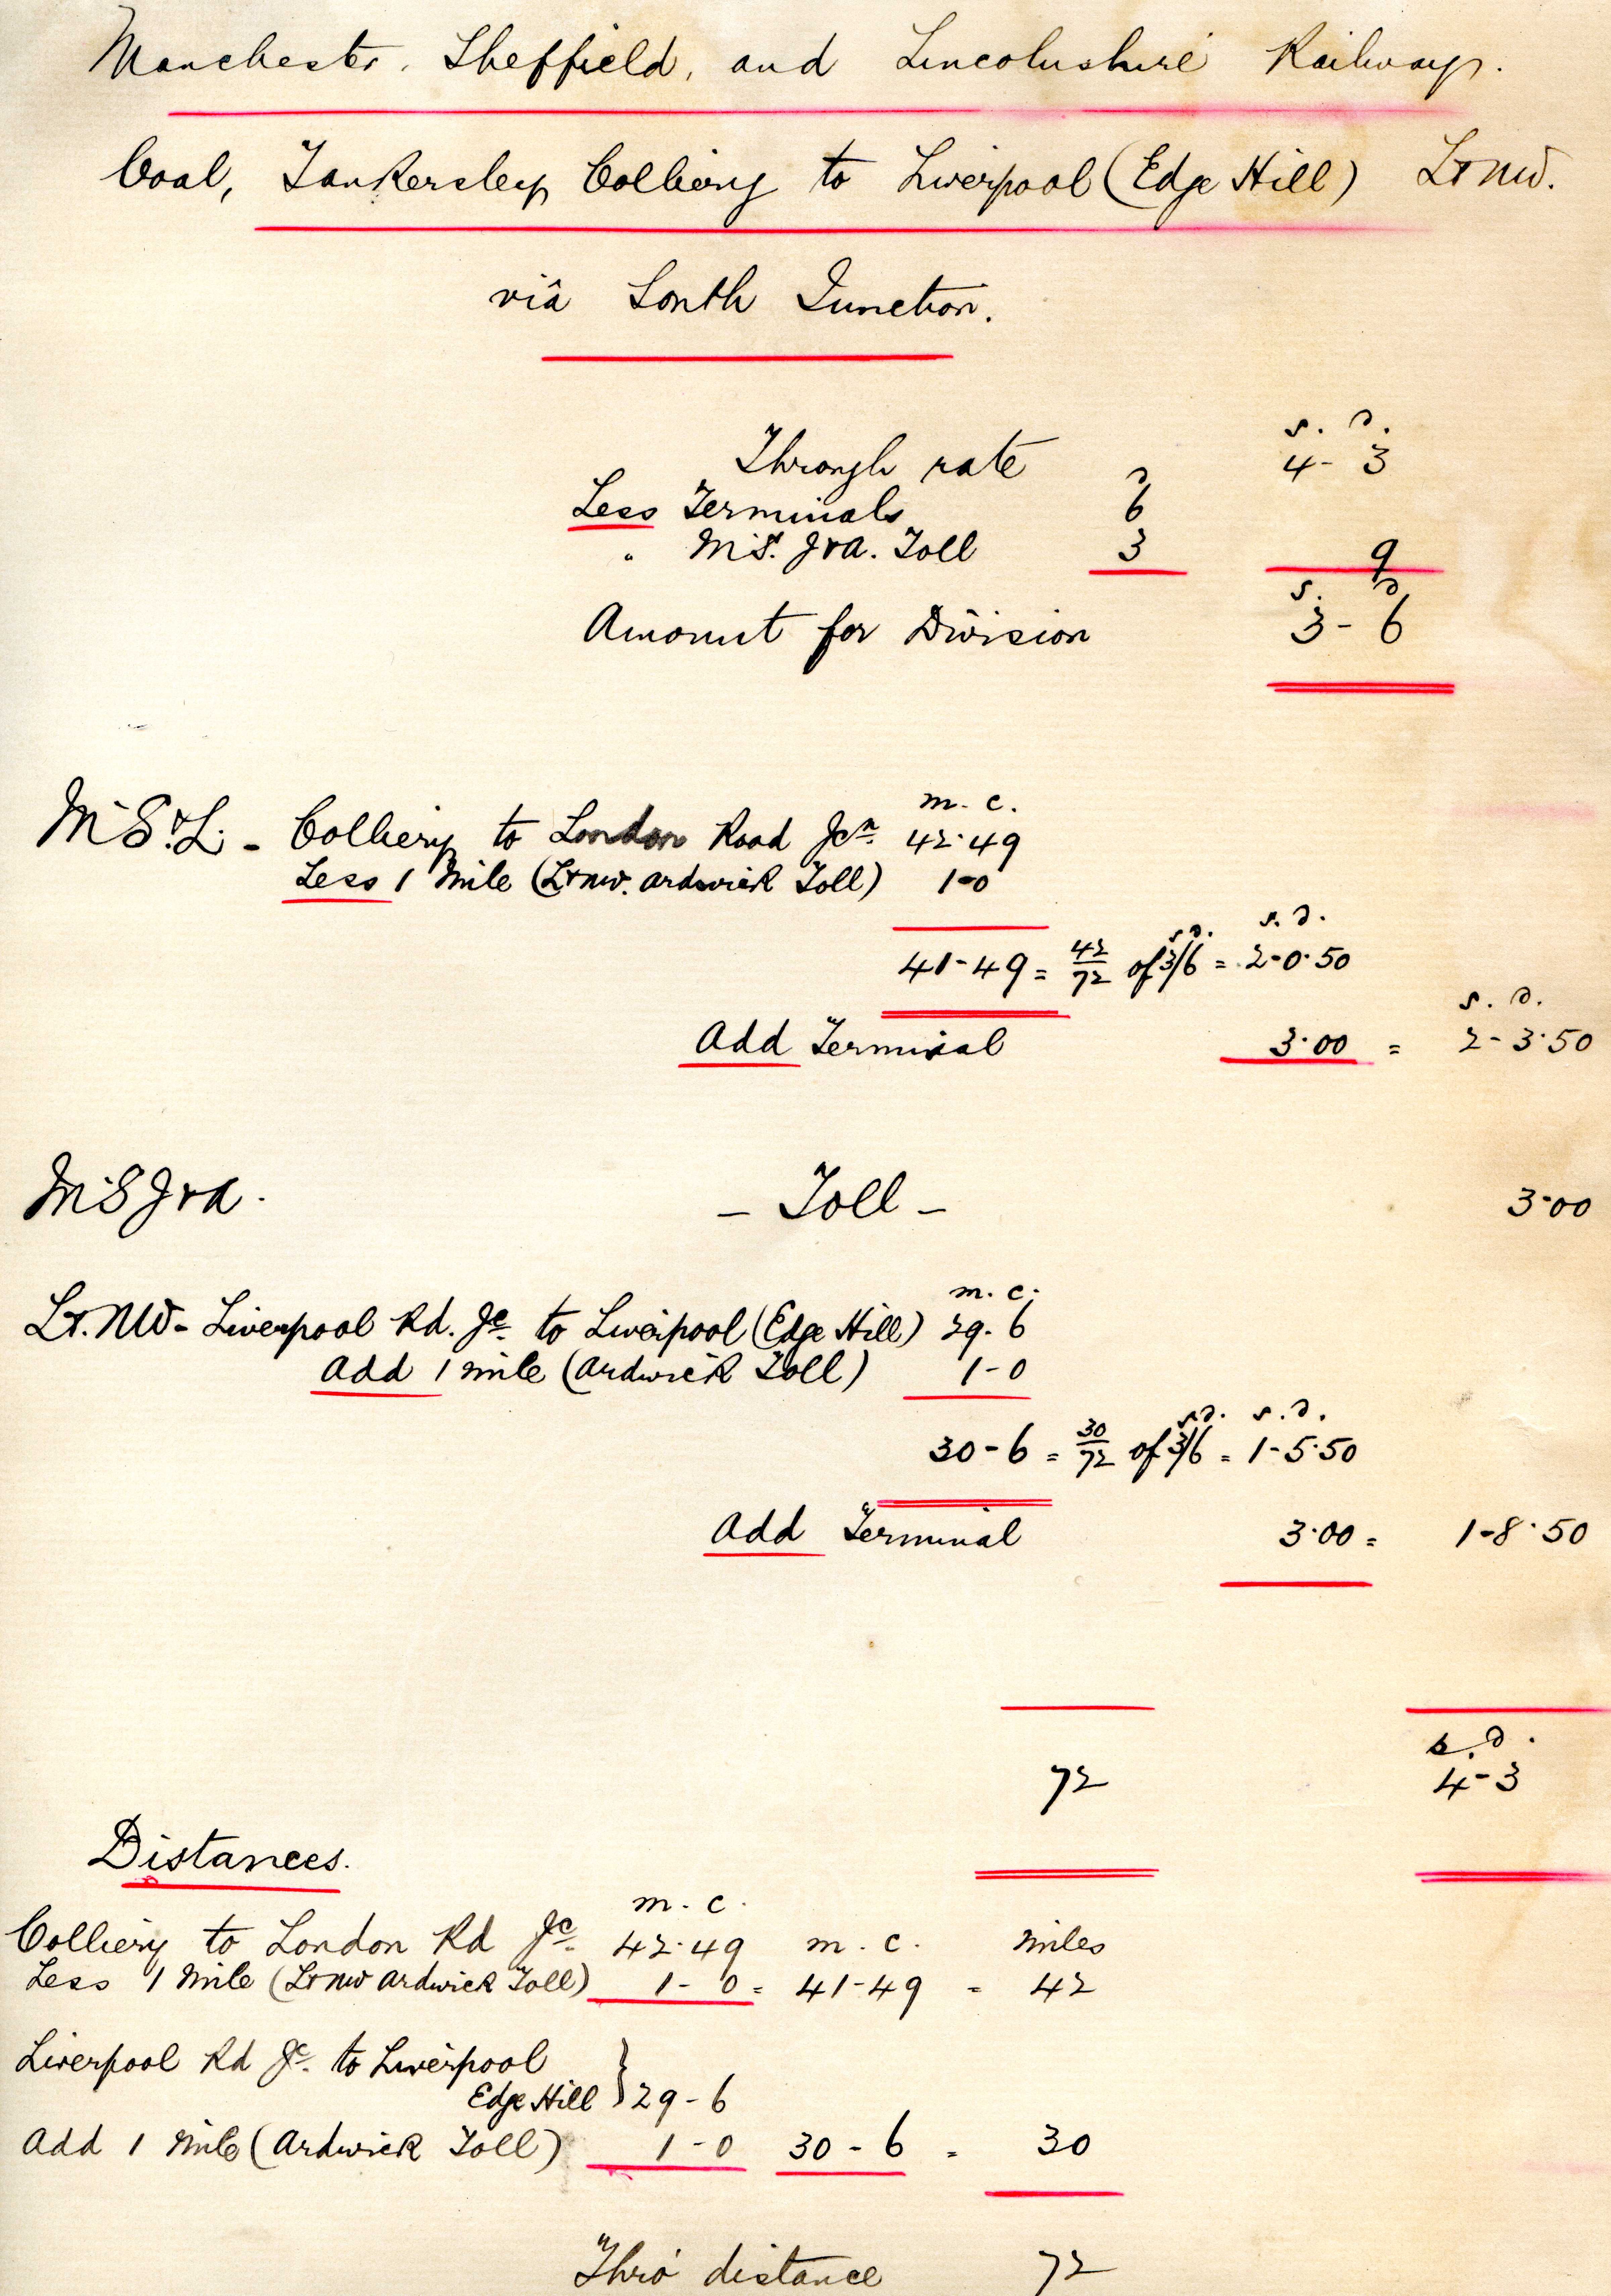 Manchester, Sheffield, and Lincolnshire Railway.
Coal, Tankersley Colliery to Liverpool (Edge Hill) L&NW.
viâ South Junction.
s. d.
Through rate 4- 3
d
Less Terminals 6
" M.S. J&A. Toll 3 9
s. d
Amount for Division 3- 6
m. c.
M.S.&L. - Colliery to London Road Jcn. 42.49
Less 1 Mile (L&NW. Ardwick Toll) 1-0
s. d. s. d.
41-49 = 42/72 of 3/6 = 2-0.50
s. d.
Add Terminal 3.00 = 2-3.50
M.S.J&A. - Toll - 3.00
m. c.
L&.NW- Liverpool Rd. Jc. to Liverpool (Edge Hill) 29.6
Add 1 mile (Ardwick Toll) 1-0
s. d. s. d.
30-6 = 30/72 of 3/6 = 1-5.50
Add Terminal 3.00 = 1-8.50
s. d.
72 4-3
Distances.
m. c.
Colliery to London Rd Jc. 42.49 m. c. miles
Less 1 Mile (L&NW Ardwick Toll) 1- 0 = 41-49 = 42
Liverpool Rd Jc. to Liverpool
Edge Hill } 29-6
Add 1 Mile (Ardwick Toll) 1-0 30-6 = 30
Thro' distance 72